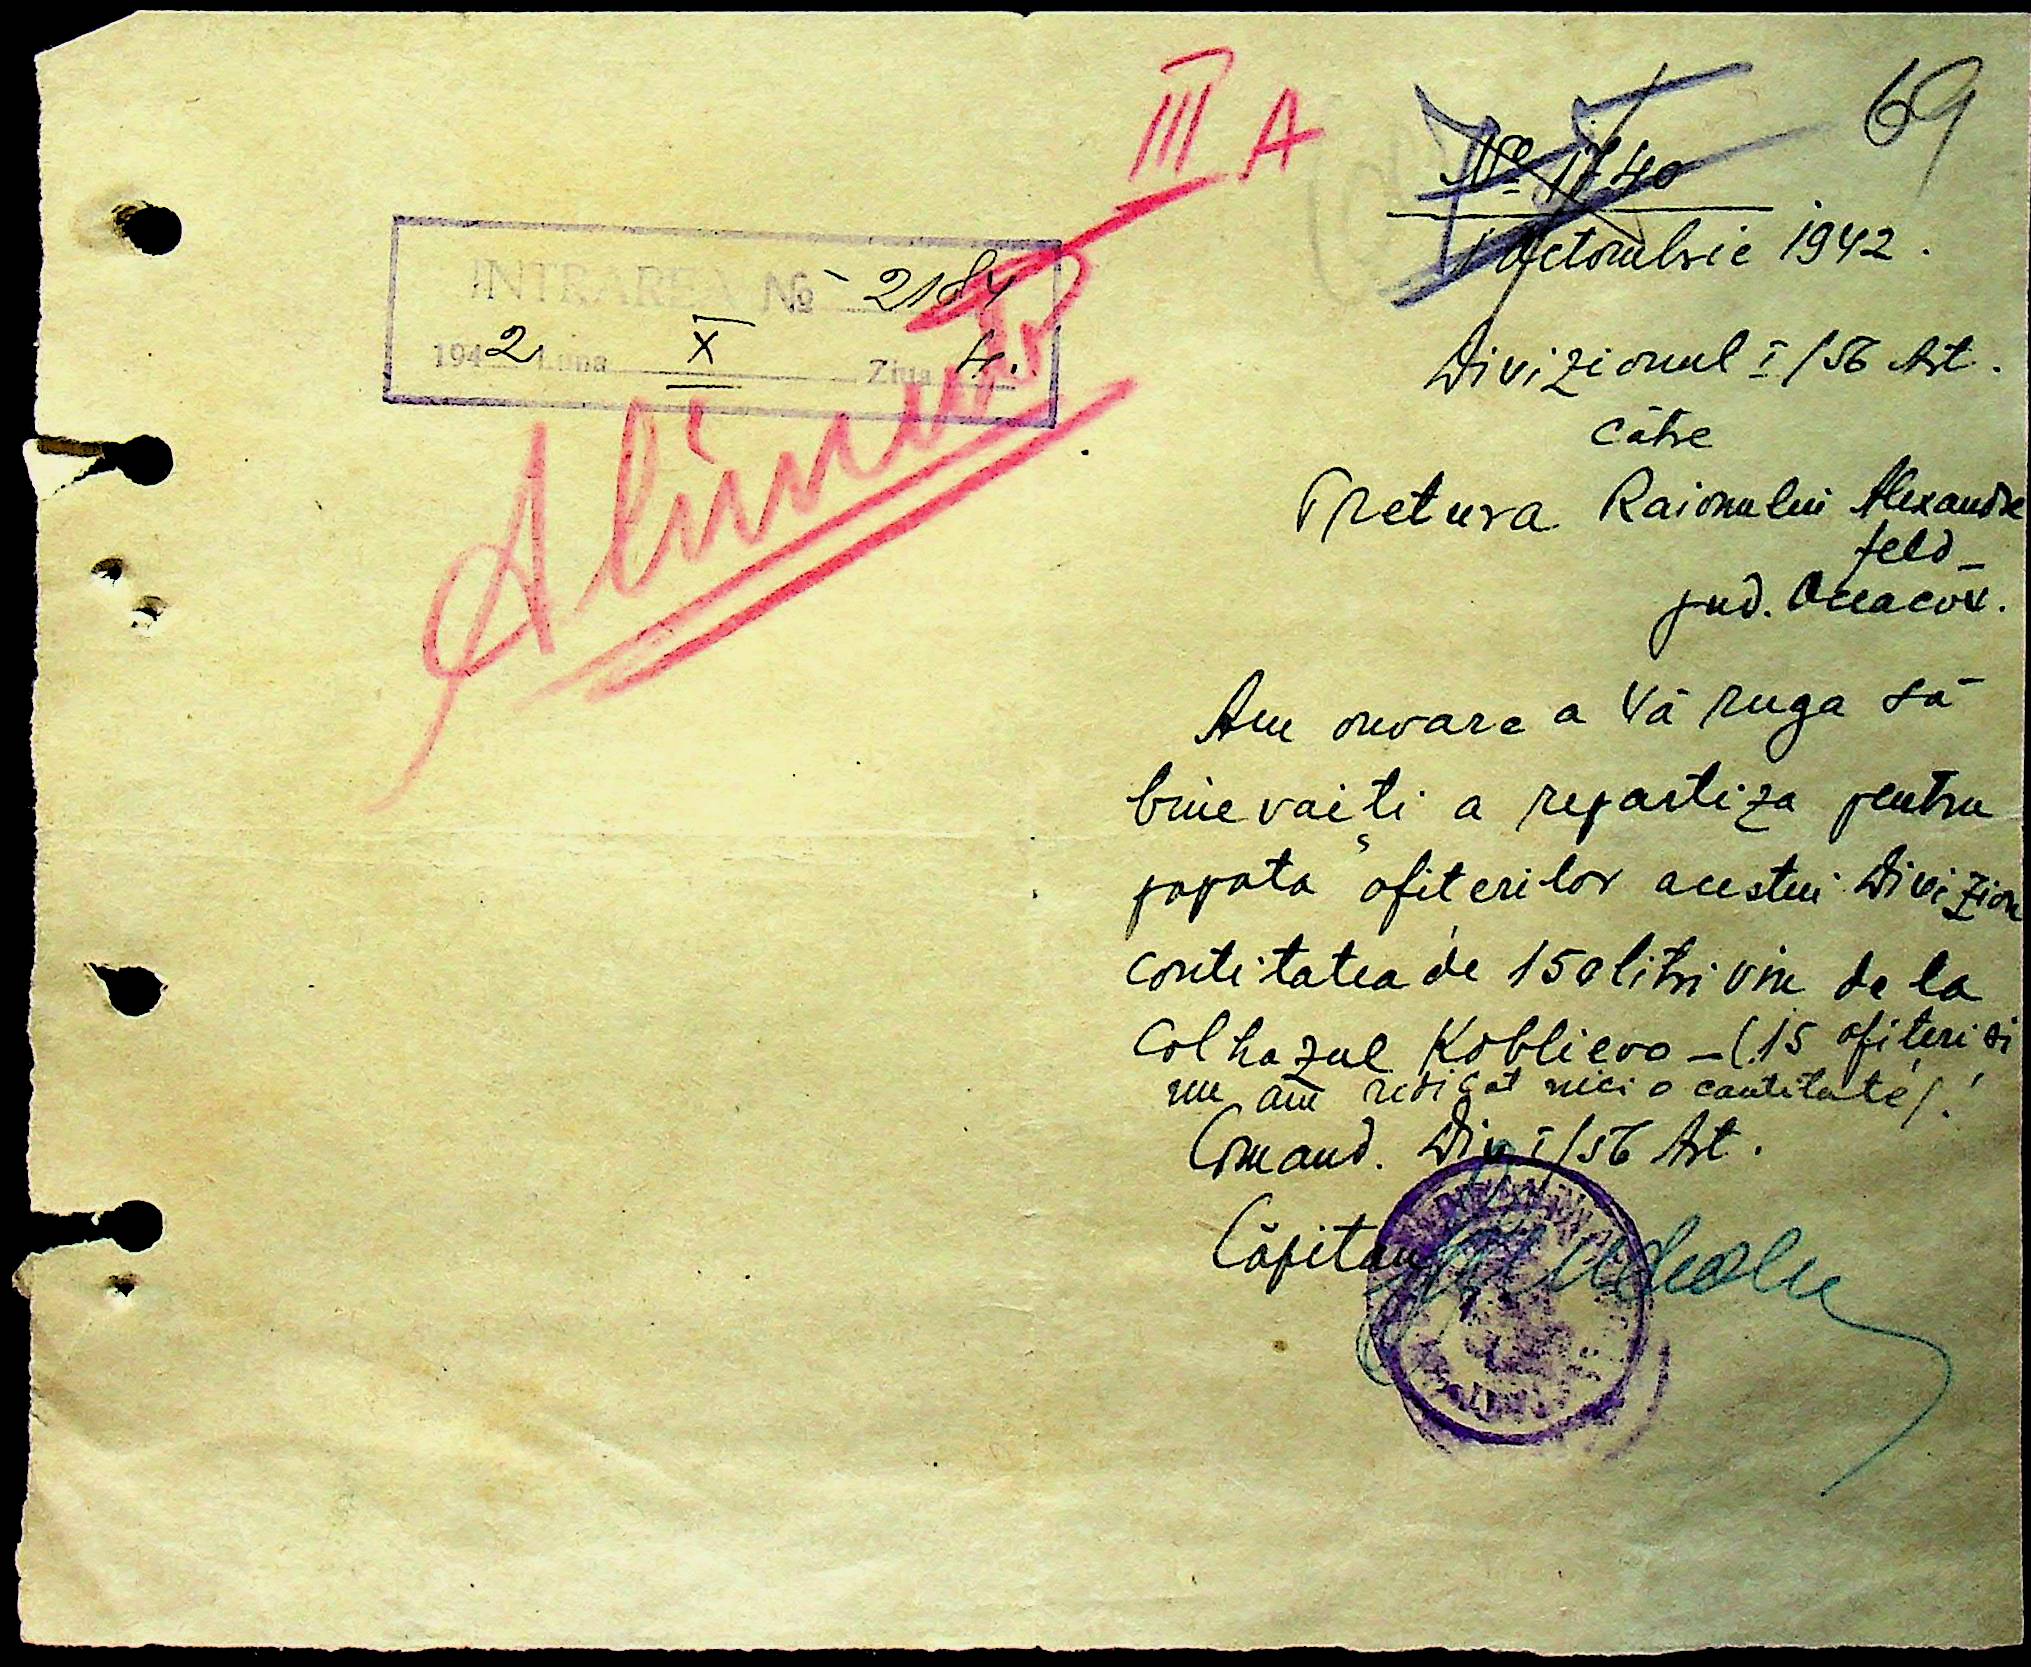 III A
69
Nº 1740
1 Octombrie 1942.
INTRAREA Nº 2184
1942 Luna X Ziua 4.
Aliment
Divizionul I/56 Art.
către
Pretura Raionului Alexandre
feld_
jud. Oceacov.
Am onoare a Vă ruga să
binevoiți a repartiza pentru
popota ofiterilor acestui Divizion
contitatea de 150 litri vin de la
Colhazul Koblievo – (15 ofițeri si
nu am ridicat nici o cantitate)!
Comand. Div. I/56 Art.
Căpitan